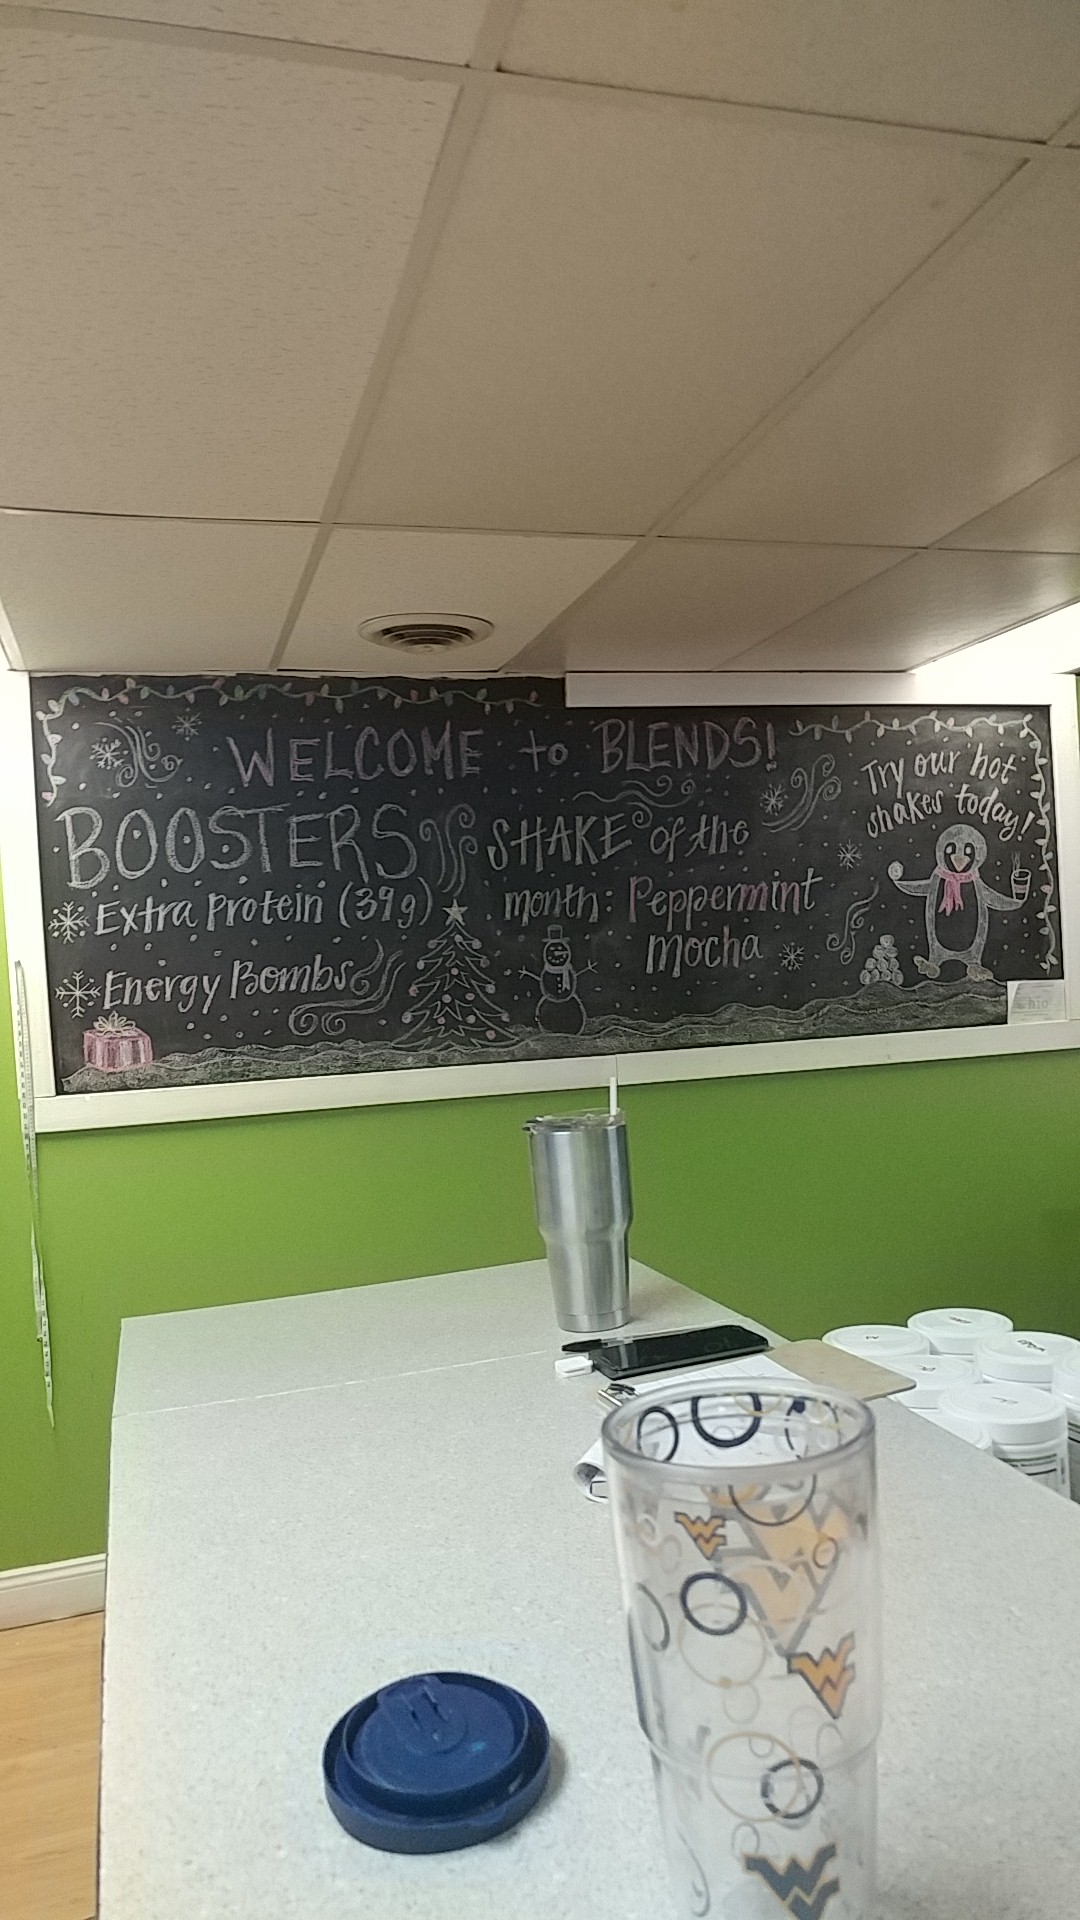 WELCOME to BLENDS!
BOOSTERS
Extra Protein (39g)
Energy Bombs
SHAKE of the
month: Peppermint
mocha
Try our hot
shakes today!
WV
WV
WV